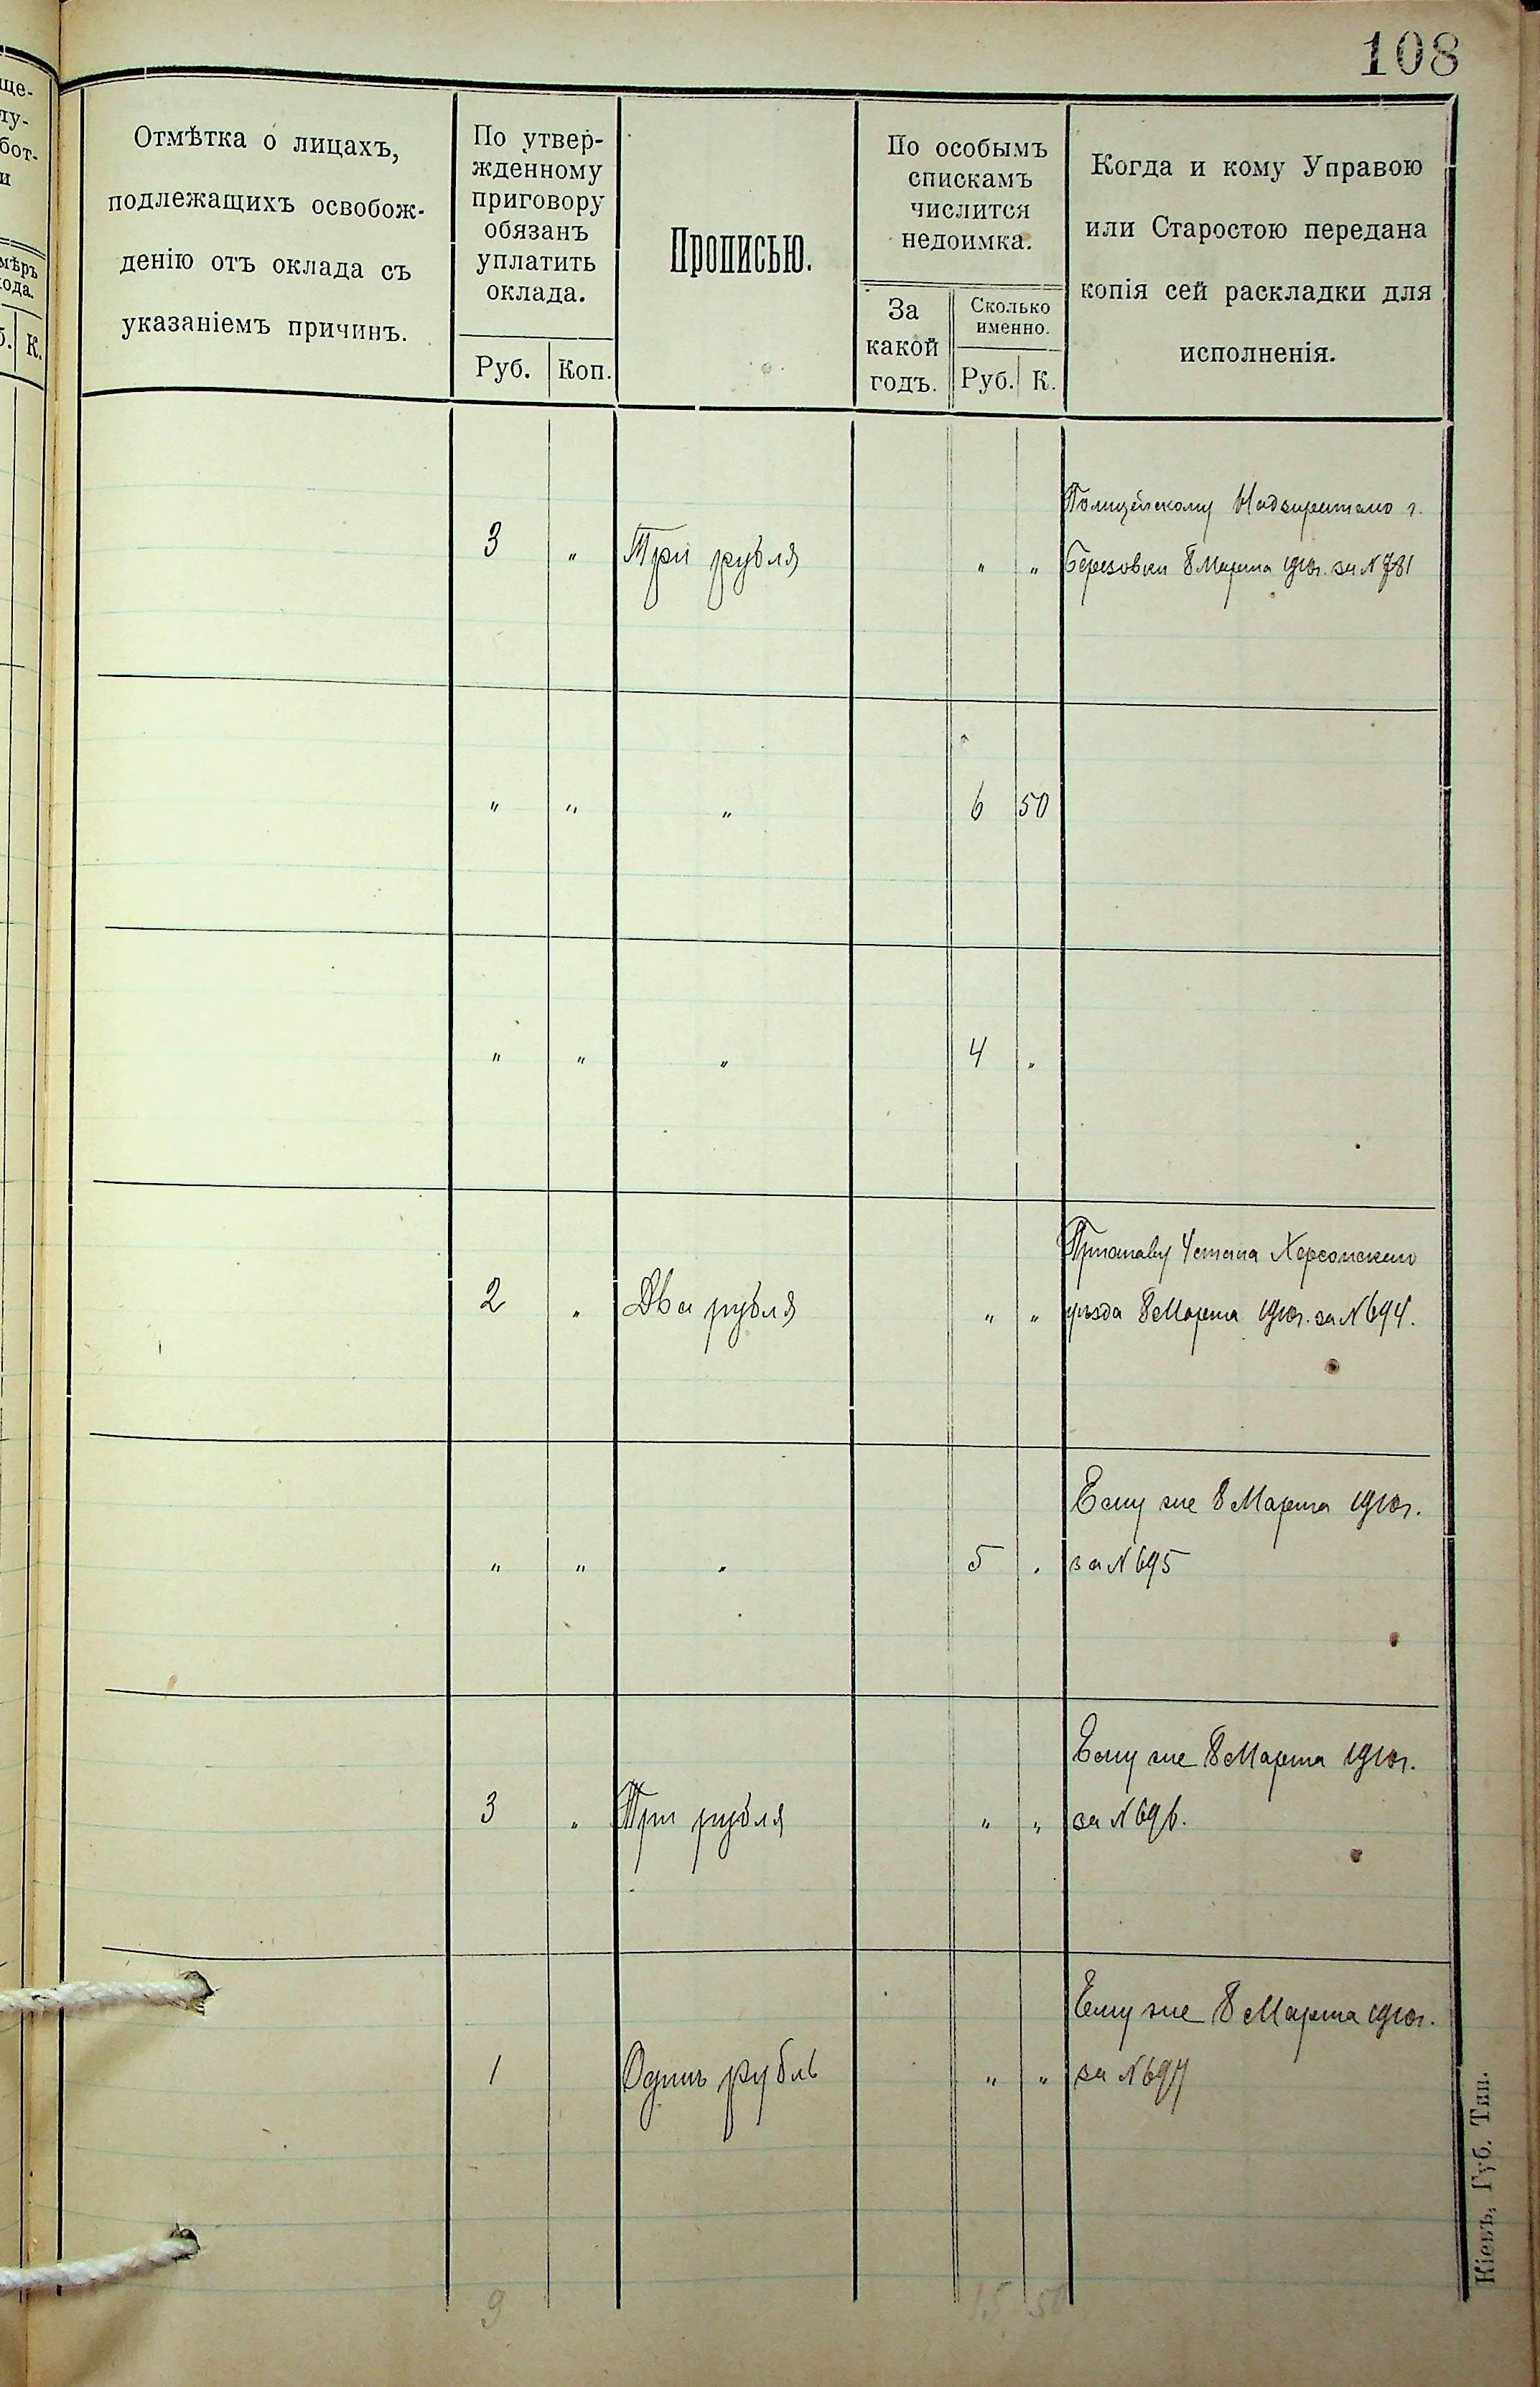 108
ще-
лу-
бот-
и
мѣръ
хода.
б. К.
Отмѣтка о лицахъ,
подлежащихъ освобож-
денію отъ оклада съ
указаніемъ причинъ.
По утвер-
жденному
приговору
обязанъ
уплатить
оклада.
Руб. Коп.
Прописью.
По особымъ
спискамъ
числится
недоимка.
За
какой
годъ.
Сколько
именно.
Руб. К.
Когда и кому Управою
или Старостою передана
копія сей раскладки для
исполненія.
Полицейскому Надзирателю г.
3 " Три рубля " " Березовки 8 Марта 1910г. за № 781
" " " 6 50
" " " 4 "
Приставу 4 стана Херсонскаго
2 " Два рубля " " уѣзда 8 Марта 1910г. за № 694.
Ему же 8 Марта 1910г.
" " " 5 " за № 695
Ему же 8 Марта 1910г.
3 " Три рубля " " за № 696.
Ему же 8 Марта 1910г.
1 Одинъ рубль " " за № 697
9 15 50
Кіевъ, Губ. Тип.